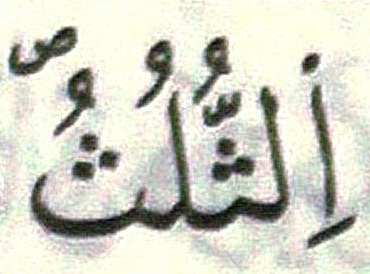 اِلثُّلُثُ ص